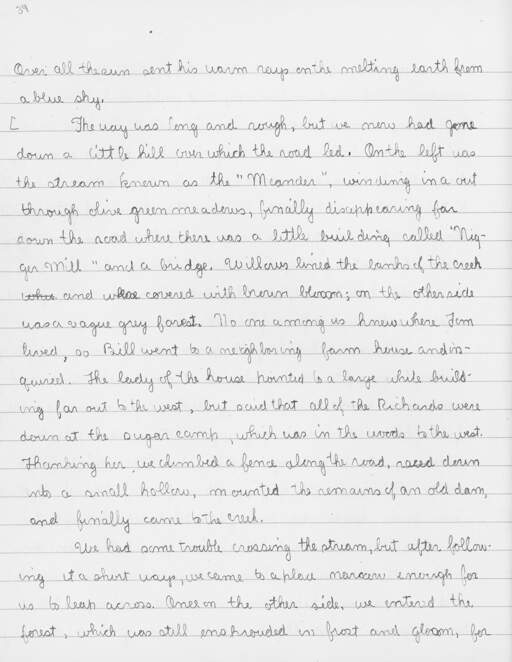 39
Over all the sun sent his warm rays on the melting earth from
a blue sky.
[ The way was long and rough, but we now had gone
down a little hill over which the road led. On the left was
the stream known as the "Meander", winding in a out
through olive green meadows, finally disappearing far
down the road where there was a little building called "Nig-
ger Mill" and a bridge. Willows lined the banks of the creek
and were covered with brown bloom; on the other side
was a vague grey forest. No one among us knew where Jim
lived, so Bill went to a neighboring farm house and in-
quired. The lady of the house pointed to a large white build-
ing far out to the west, but said that all of the Richards were
down at the sugar camp, which was in the woods to the west.
Thanking her, we climbed a fence along the road, raced down
into a small hollow, mounted the remains of an old dam,
and finally came to the creek.
We had some trouble crossing the stream, but after follow-
ing it a short ways, we came to a place narrow enough for
us to leap across. Once on the other side, we entered the
forest, which was still enshrouded in frost and gloom, for